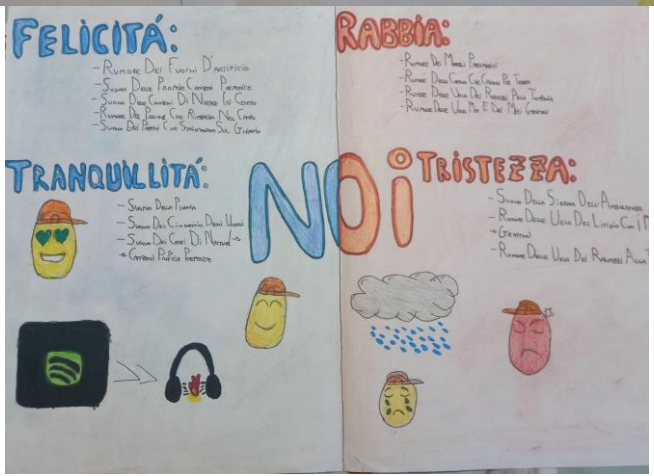 FELICITÁ:
- RUMORE DEI FUOCHI D'ARTIFICIO
- SUONO DELLE PROPRIE CANZONI PREFERITE
- SUONO DELLE CANZONI DI NATALE IN
- RUMORE DEL PALLONE CHE RIMBALZA NEL CAMPO
- SUONO DEI CHE SUL
RABBIA:
- RUMORE DEI
- RUMORE DELLA CHE CADONO PER TERRA
- RUMORE DELLE URLA DEI RAGAZZI ALLA
- RUMORE DELLE URLA E DEI MIEI GENITORI
TRANQUILLITÁ:
- SUONO DELLA PIOGGIA
- SUONO DEL CINGUETTIO DEGLI UCCELLI
- SUONO DEI CANTI DI NATALE
CANZONI PROPRIE PREFERITE
NOi
TRISTEZZA:
- SUONO DELLA SIRENA DELL'AMBULANZA
- RUMORE DELLE URLA DEI LITIGI CON I
GENITORI
- RUMORE DELLE URLA DEI RAGAZZI ALLA